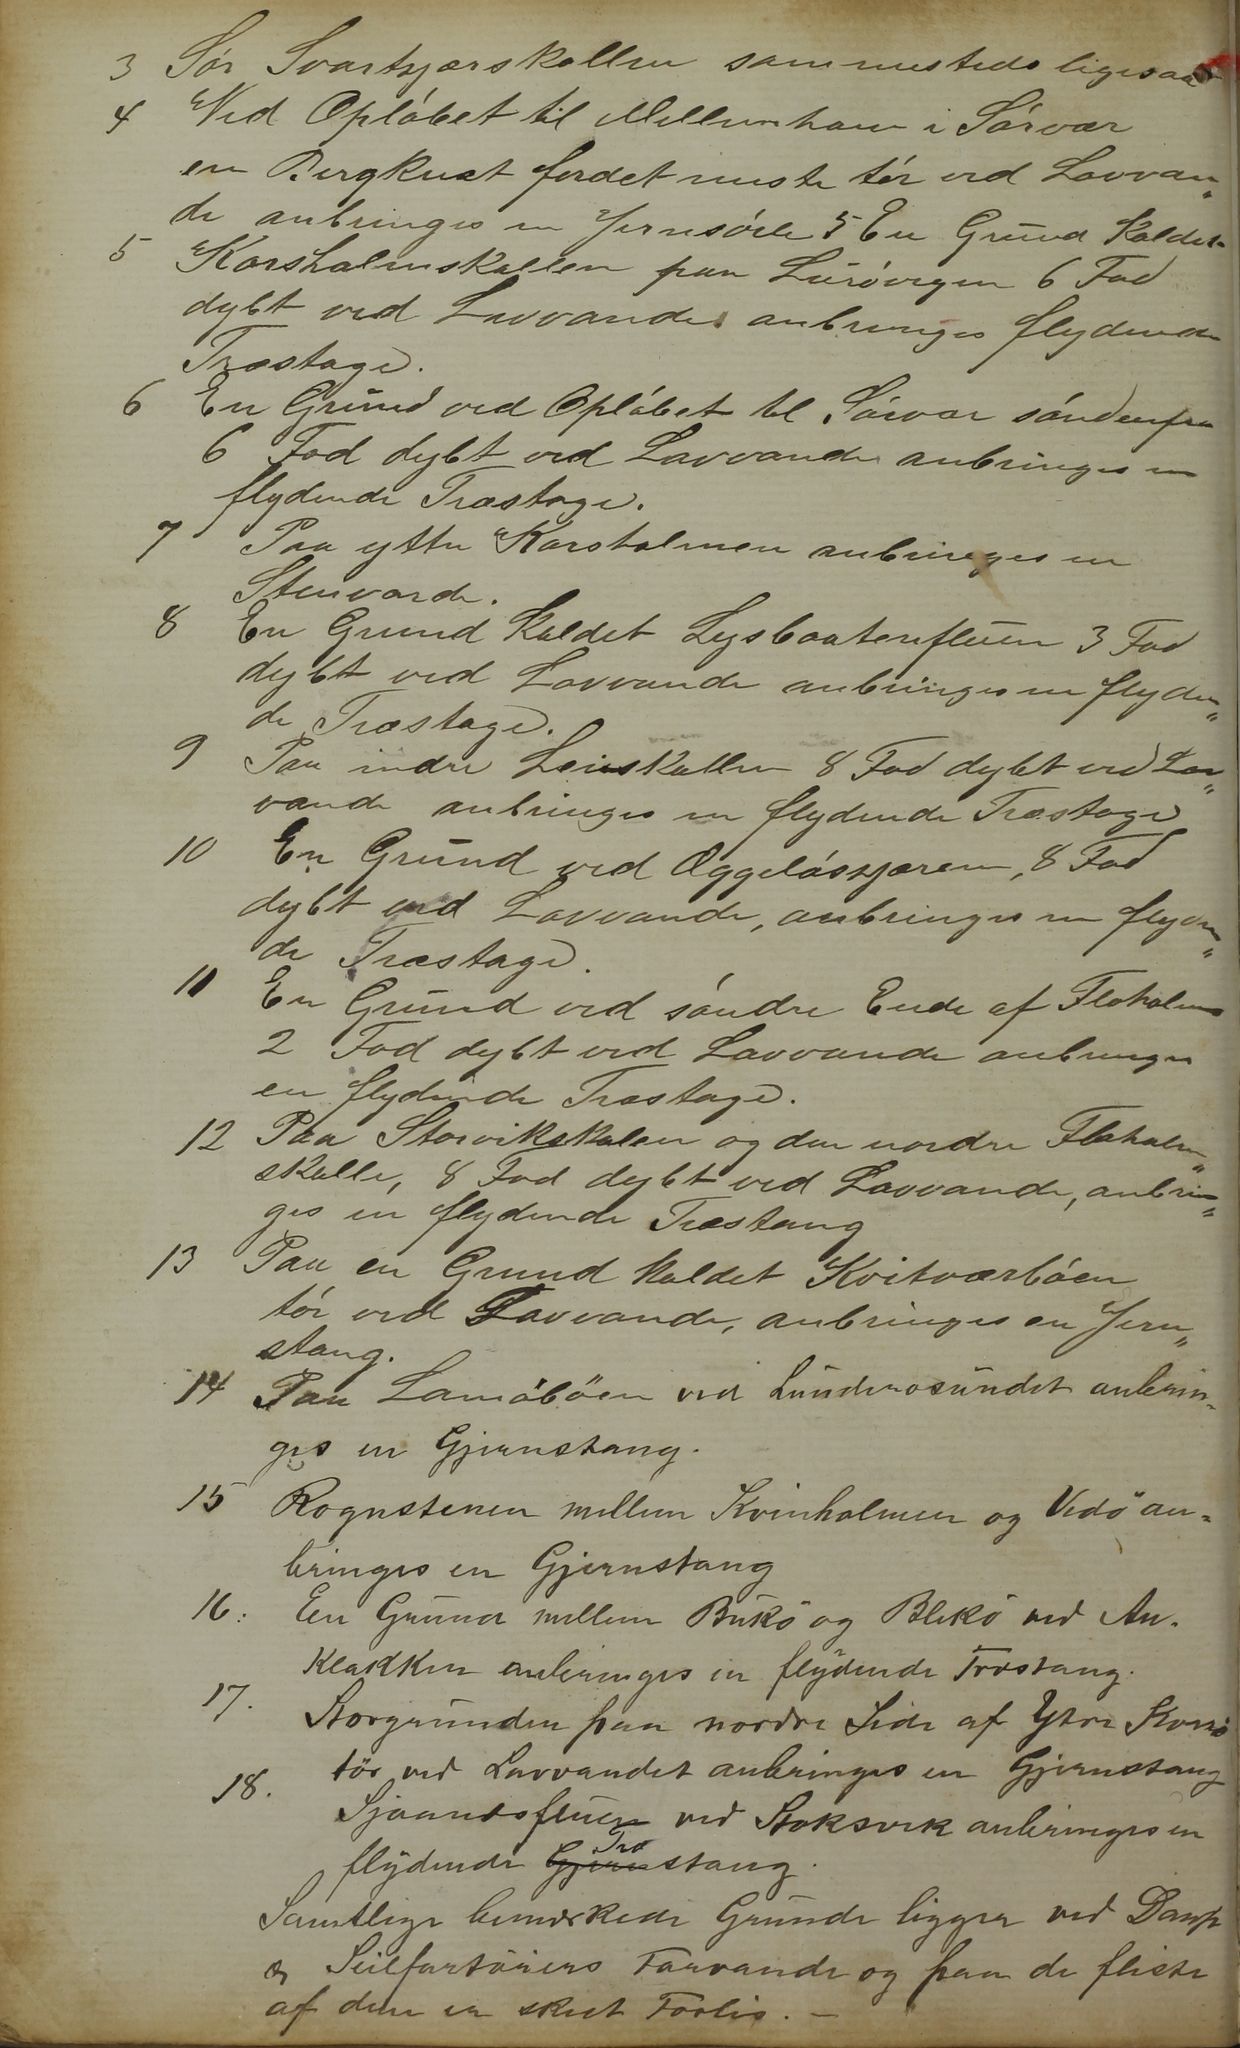 3 Sór Svartsjærskallen sammesteds ligesaa
4 Ved Oplóbet til Mellemhavn i Sórvær
en Bergknat fordetmeste tór ved Lavvan„
de anbringes en Jernsóile 5 En Grund kaldet
5 Korsholmskallen paa Lurövegen 6 Fod
dybt ved Lavvande anbringes flydende
Træstage.
6 En Grund ved Oplóbet til Sórvær söndenfra
6 Fod dybt ved Lavvande anbringes en
flydende Træstage.
7 Paa yttre Korsholmen anbringes en
Stenvarde.
8 En Grund kaldet Lysbaatenfluen 3 Fod
dybt ved Lavvande anbringes en flyden„
de Træstage.
9 Paa indre Leiskallen 8 Fod dybt ved Lav„
vande anbringes en flydende Træstage
10 En Grund ved Æggelósskjæren, 8 Fod
dybt ved Lavvande, anbringes en flyden„
de Træstage.
11 En Grund ved sóndre Ende af Floholmen
2 Fod dybt ved Lavvande anbringes
en flydende Træstage.
12 Paa Storvikskalen og den nordre Floholm„
skalle, 8 Fod dybt ved Lavvande, anbrin„
ges en flydende Træstang
13 Paa en Grund kaldet Kvitværbóen
tór ved Lavvande, anbringes en Jern„
stang.
14 Paa Lamöböen ved Lünderosündet anbrin„
ges en Gjernstang.
15 Rognstenen mellem Kvinholmen og Vedö an=
bringes en Gjernstang
16. En Grund mellem Bukö og Blekö ved An.
klakken anbringes en flydende Træstang.
17. Storgrunden paa nordre Side af Ytre Kvarö
tör ved Lavvandet anbringes en Gjernstang
18. Sjaandsfluen ved Stoksvik anbringes en
flydende Gjern Træ stang.
Samtlige bemærkede Grunde ligger ved Damp
& Seilfartöiers Farvande og paa de fleste
af dem er skeet Forlis. —